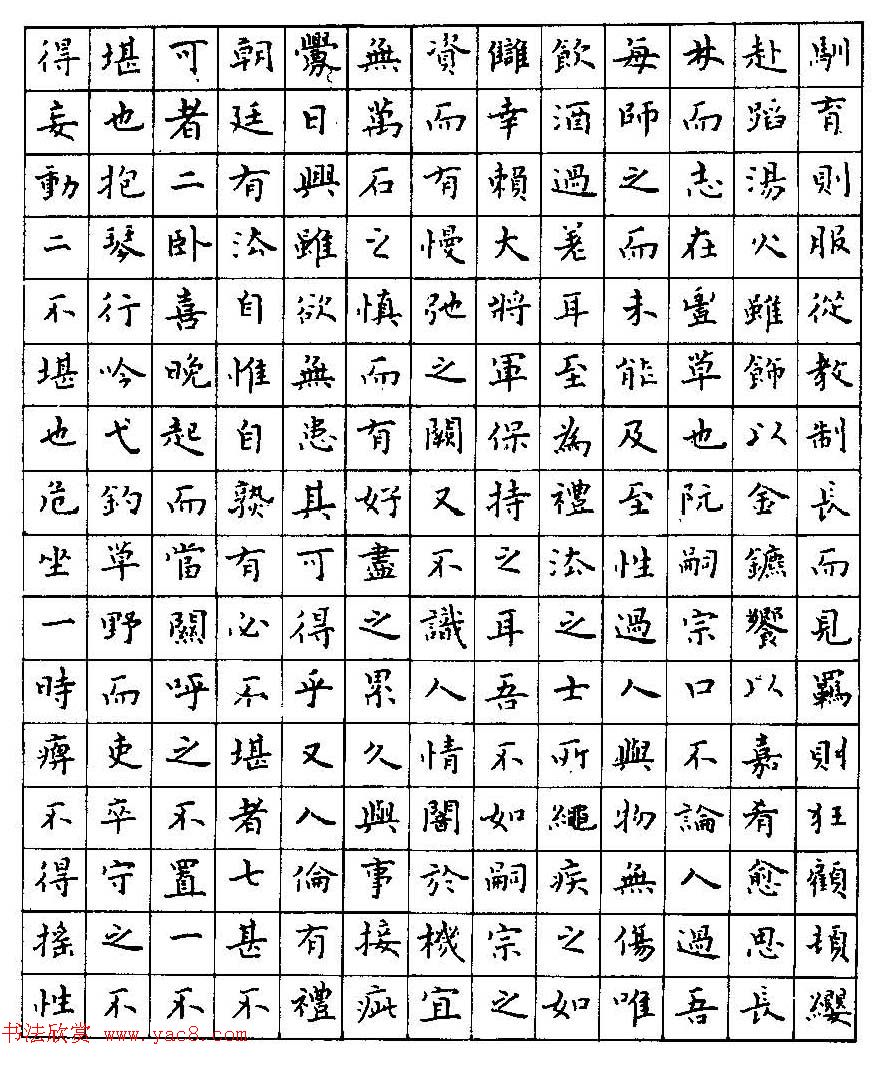 馴育則服從教制長而見羈則狂顧頓纓
赴蹈湯火雖飾以金鑣饗以嘉肴愈思長
林而志在豐草也阮嗣宗口不論人過吾
每師之而未能及至性過人與物無傷唯
飲酒過差耳至為禮法之士所繩疾之如
讎幸賴大將軍保持之耳吾不如嗣宗之
資而有慢弛之闕又不識人情闇於機宜
無萬石之慎而有好盡之累久與事接疵
釁日興雖欲無患其可得乎又人倫有禮
朝廷有法自惟自熟有必不堪者七甚不
可者二卧喜晚起而當關呼之不置一不
堪也抱琴行吟弋釣草野而吏卒守之不
得妄動二不堪也危坐一時痹不得搖性
书法欣赏 www.yac8.com